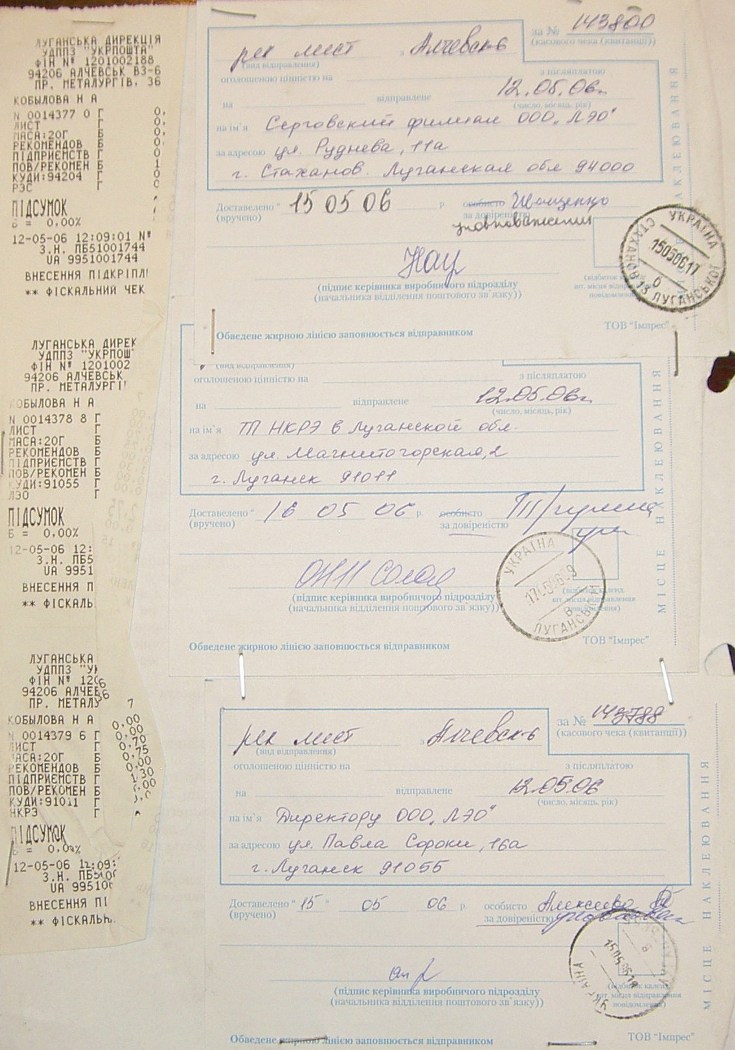 ЛУГАНСЬКА ДИРЕКЦІЯ
УДППЗ "УКРПОШТА"
ФІН N° 1201002188
94206 АЛЧЕВСЬК ВЗ-6
ПР. МЕТАЛУРГІВ, 36
КОБЫЛОВА Н А
N 0014377 0 Г
ЛИСТ Б
МАСА:20Г Б
РЕКОМЕНДОВ Б
ПІДПРИЄМСТВ Г
ПОВ/РЕКОМЕН Б
КУДИ:94204 Г
РЭС Г
ПІДСУМОК
Б = 0.00%
12-05-06 12:09:01 N°
З.Н. ПБ51001744
UA 9951001744
ВНЕСЕННЯ ПІДКРІПЛ
** ФІСКАЛЬНИЙ ЧЕК
ЛУГАНСЬКА ДИРЕК
УДППЗ "УКРПОШ
ФІН N° 1201002
94206 АЛЧЕВСЬК
ПР. МЕТАЛУРГІ
КОБЫЛОВА Н А
N 0014378 8 Г
ЛИСТ Г
МАСА:20Г Б
РЕКОМЕНДОВ Б
ПІДПРИЄМСТВ Г
ПОВ/РЕКОМЕН Б
КУДИ:91055 Г
ЛЭО Г
ПІДСУМОК
Б = 0.00%
12-05-06 12:
З.Н. ПБ5
UA 9951
ВНЕСЕННЯ П
** ФІСКАЛЬ
ЛУГАНСЬКА
УДППЗ "УК
ФІН N° 120
94206 АЛЧЕВ
ПР. МЕТАЛУ
КОБЫЛОВА Н А
N 0014379 6 Г 0,00
ЛИСТ Г
МАСА:20Г Б
РЕКОМЕНДОВ Б
ПІДПРИЄМСТВ Г
ПОВ/РЕКОМЕН Б
КУДИ:91011 Г
НКРЭ Г
ПІДСУМОК
Б = 0.0%
12-05-06 12:09:
З.Н. ПБ5100
UA 99510
ВНЕСЕННЯ ПІ
** ФІСКАЛЬН
рек лист Алчевск-6
за № 143800
(вид відправлення)
(касового чека (квитанції))
оголошеною цінністю на з післяплатою
на відправлене 12.05.06г.
(число, місяць, рік)
на ім'я Серговский филиал ООО "ЛЭО"
за адресою ул. Руднева, 11а
г. Стаханов Луганская обл 94000
Доставлено " 15 05 06 р. особисто Иващенко
(вручено) за довіреністю уповноважений
(підпис керівника виробничого підрозділу
(начальника відділення поштового зв'язку))
Обведене жирною лінією заповнюється відправником
ТОВ "Імпрес"
МІСЦЕ НАКЛЕЮВАННЯ
УКРАЇНА
150506 17
СТАХАНОВ 13 ЛУГАНСЬКОЇ
(вид відправлення)
оголошеною цінністю на з післяплатою
на відправлене 12.05.06г.
(число, місяць, рік)
на ім'я ТП НКРЭ в Луганской обл.
за адресою ул. Магнитогорская, 2
г. Луганск 91011
Доставлено " 16 05 06 р. особисто
(вручено) за довіреністю
(підпис керівника виробничого підрозділу
(начальника відділення поштового зв'язку))
Обведене жирною лінією заповнюється відправником
ТОВ "Імпрес"
МІСЦЕ НАКЛЕЮВАННЯ
УКРАЇНА
рек лист Алчевск-6
за № 143788
(вид відправлення)
(касового чека (квитанції))
оголошеною цінністю на з післяплатою
на відправлене 12.05.06
(число, місяць, рік)
на ім'я Директору ООО "ЛЭО"
за адресою ул. Павла Сороки, 16а
г. Луганск 91055
Доставлено " 15 " 05 06 р. особисто Алексеева
(вручено) за довіреністю
(підпис керівника виробничого підрозділу
(начальника відділення поштового зв'язку))
Обведене жирною лінією заповнюється відправником
ТОВ "Імпрес"
МІСЦЕ НАКЛЕЮВАННЯ
УКРАЇНА